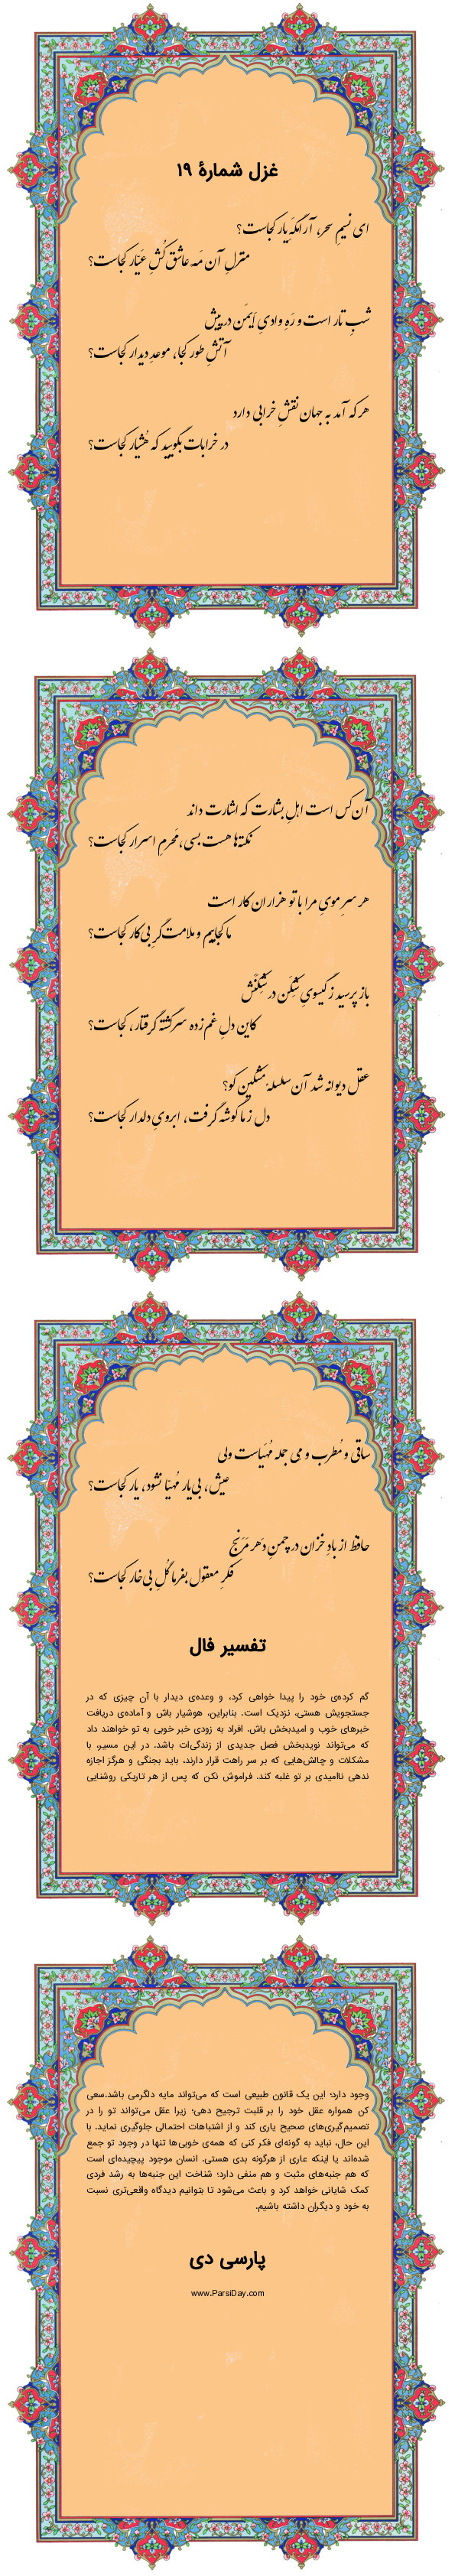 غزل شمارهٔ ۱۹
ای نسیمِ سحر، آرامگَهِ یار کجاست؟
منزلِ آن مَهِ عاشق‌کُشِ عیّار کجاست؟
شبِ تار است و رَهِ وادیِ اَیمَن در پیش
آتشِ طور کجا، موعدِ دیدار کجاست؟
هر که آمد به جهان نقشِ خرابی دارد
در خرابات بگویید که هُشیار کجاست؟
آن‌کس است اهلِ بشارت که اشارت داند
نکته‌ها هست بسی، مَحرمِ اسرار کجاست؟
هر سرِ مویِ مرا با تو هزاران کار است
ما کجاییم و ملامت‌گرِ بی‌کار کجاست؟
باز پرسید ز گیسویِ شِکَن در شِکَنَش
کاین دلِ غم‌زده سرگشته گرفتار، کجاست؟
عقل دیوانه شد آن سلسلهٔ مشکین کو؟
دل ز ما گوشه گرفت، ابرویِ دلدار کجاست؟
ساقی و مُطرب و مِی جمله مُهیّاست ولی
عیش، بی‌یار مُهیّا نشود، یار کجاست؟
حافظ از بادِ خزان در چمنِ دَهر مَرَنج
فکرِ معقول بفرما گُلِ بی‌خار کجاست؟
تفسیر فال
گم کرده‌ی خود را پیدا خواهی کرد، و وعده‌ی دیدار با آن چیزی که در
جستجویش هستی، نزدیک است. بنابراین، هوشیار باش و آماده‌ی دریافت
خبرهای خوب و امیدبخش باش. افراد به زودی خبر خوبی به تو خواهند داد
که می‌تواند نویدبخش فصل جدیدی از زندگی‌ات باشد. در این مسیر، با
مشکلات و چالش‌هایی که بر سر راهت قرار دارند، باید بجنگی و هرگز اجازه
ندهی ناامیدی بر تو غلبه کند. فراموش نکن که پس از هر تاریکی روشنایی
وجود دارد؛ این یک قانون طبیعی است که می‌تواند مایه دلگرمی باشد.سعی
کن همواره عقل خود را بر قلبت ترجیح دهی؛ زیرا عقل می‌تواند تو را در
تصمیم‌گیری‌های صحیح یاری کند و از اشتباهات احتمالی جلوگیری نماید. با
این حال، نباید به گونه‌ای فکر کنی که همه‌ی خوبی‌ها تنها در وجود تو جمع
شده‌اند یا اینکه عاری از هرگونه بدی هستی. انسان موجود پیچیده‌ای است
که هم جنبه‌های مثبت و هم منفی دارد؛ شناخت این جنبه‌ها به رشد فردی
کمک شایانی خواهد کرد و باعث می‌شود تا بتوانیم دیدگاه واقعی‌تری نسبت
به خود و دیگران داشته باشیم.
پارسی دی
www.ParsiDay.com